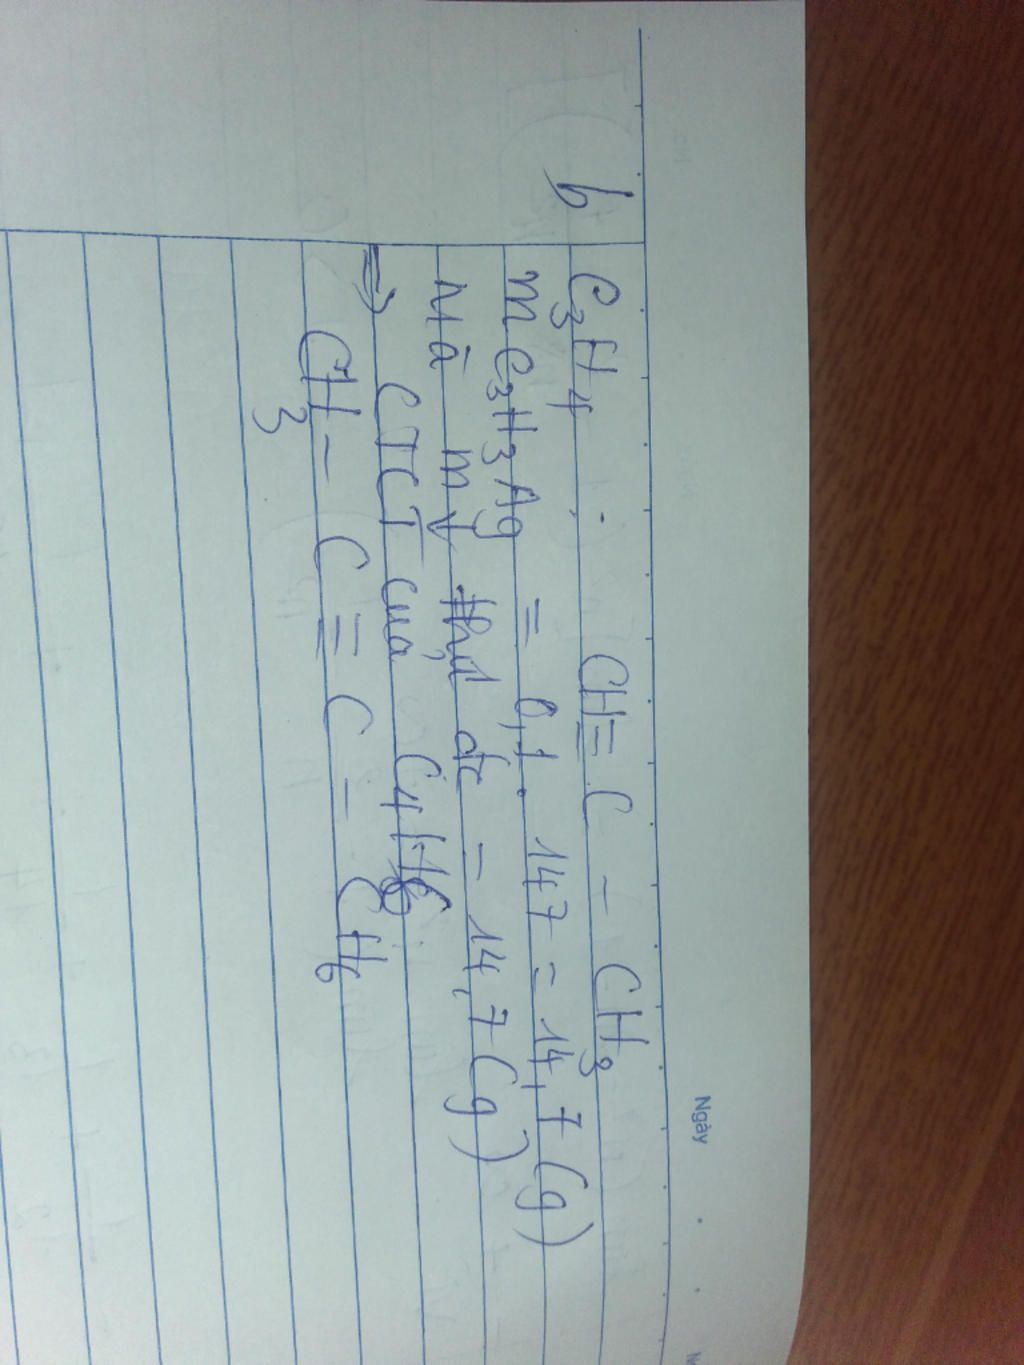 Ngày
b C₃H₄ : CH≡C – CH₃
m C₃H₃Ag = 0,1 . 147 = 14,7 (g)
Mà m↓ thu đc = 14,7 (g)
=> CTCT của C₄H₆
CH₃ – C ≡ C – CH₆